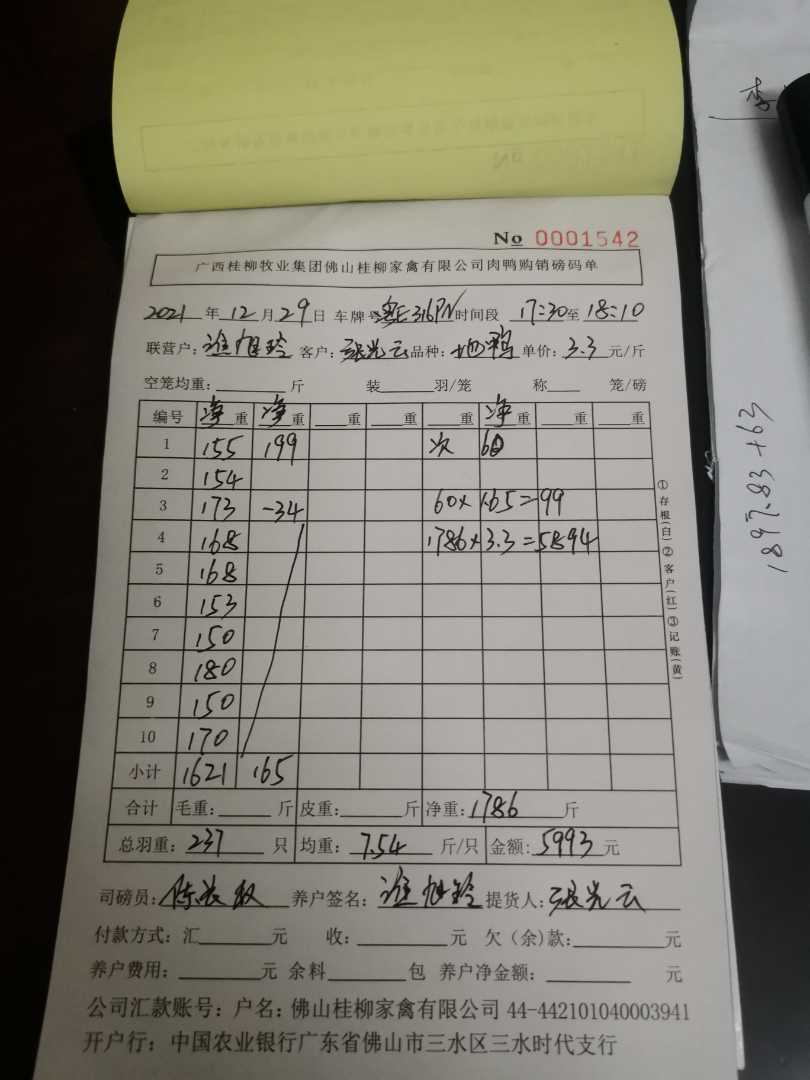 No 0001542
广西桂柳牧业集团佛山桂柳家禽有限公司肉鸭购销磅码单
2021 年 12 月 29 日 车牌号 粤E316PN 时间段 17:30 至 18:10
联营户: 旭玲 客户: 张光云 品种: 地鸭 单价: 3.3 元/斤
空笼均重: 斤 装 羽/笼 称 笼/磅
编号 净重 净重 重 重 重 净重 重 重
1 155 199 次 60
2 154
3 173 -34 60×1.65=99
4 168 1786×3.3=5894
5 168
6 153
7 150
8 180
9 150
10 170
小计 1621 165
合计 毛重: 斤 皮重: 斤 净重: 1786 斤
总羽重: 237 只 均重: 7.54 斤/只 金额: 5993 元
司磅员: 陈 养户签名: 旭玲 提货人: 张光云
付款方式: 汇 元 收: 元 欠(余)款: 元
养户费用: 元 余料 包 养户净金额: 元
公司汇款账号: 户名: 佛山桂柳家禽有限公司 44-442101040003941
开户行: 中国农业银行广东省佛山市三水区三水时代支行
①存根(白)②客户(红)③记账(黄)
李
1897.83+63